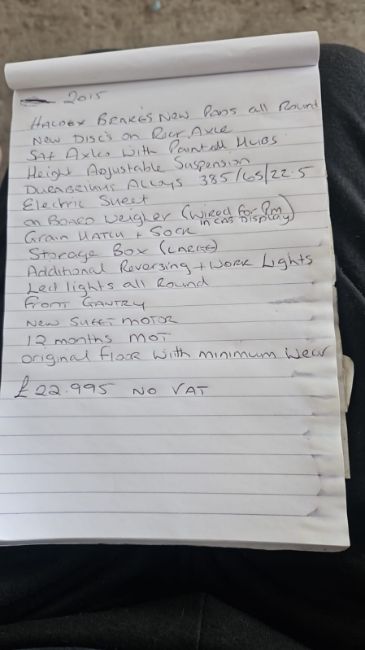 2015
HALDEX BRAKES New Pads all Round
New Discs on Rear Axle
SAF Axles with Painted Hubs
Height Adjustable Suspension
Alloys 385/65/22.5
Electric Sheet
on Board Weigher (Wired for
in cab Display)
Grain HATCH + Sock
Storage Box (LARGE)
Additional Reversing + Work Lights
Led lights all Round
front GANTRY
New Sheet motor
12 months MOT
original floor with minimum Wear
£22.995 NO VAT